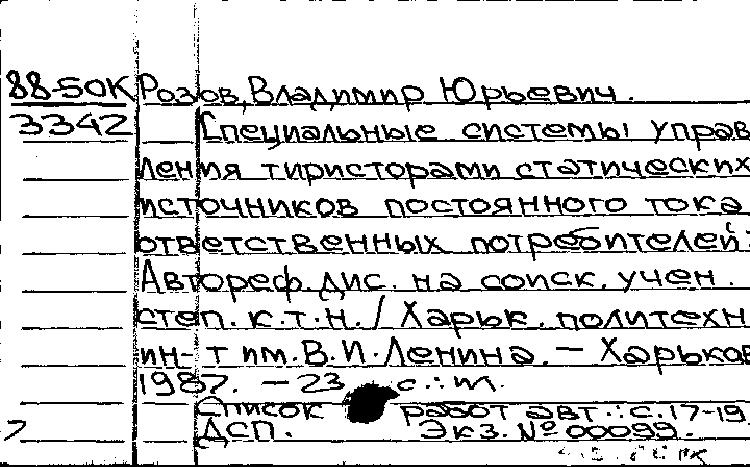 88-50К Розов, Владимир Юрьевич.
3342 Специальные системы управ
ления тиристорами статических
источников постоянного тока
ответственных потребителей:
Автореф. дис. на соиск. учен.
степ. к.т.н. / Харьк. политехн
ин-т им. В.И. Ленина. — Харьков
1987. — 23 с.: ил.
Список работ авт.: с. 17-19
ДСП. Экз. № 00099.